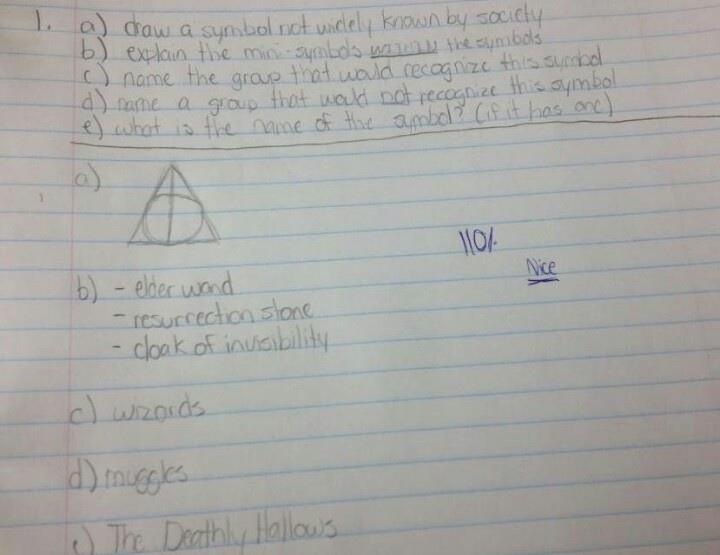 1. a) draw a symbol not widely known by society
b) explain the mini-symbols within the symbols
c) name the group that would recognize this symbol
d) name a group that would not recognize this symbol
e) what is the name of the symbol? (if it has one)
a)
110%
Nice
b) - elder wand
- resurrection stone
- cloak of invisibility
c) wizards
d) muggles
e) The Deathly Hallows